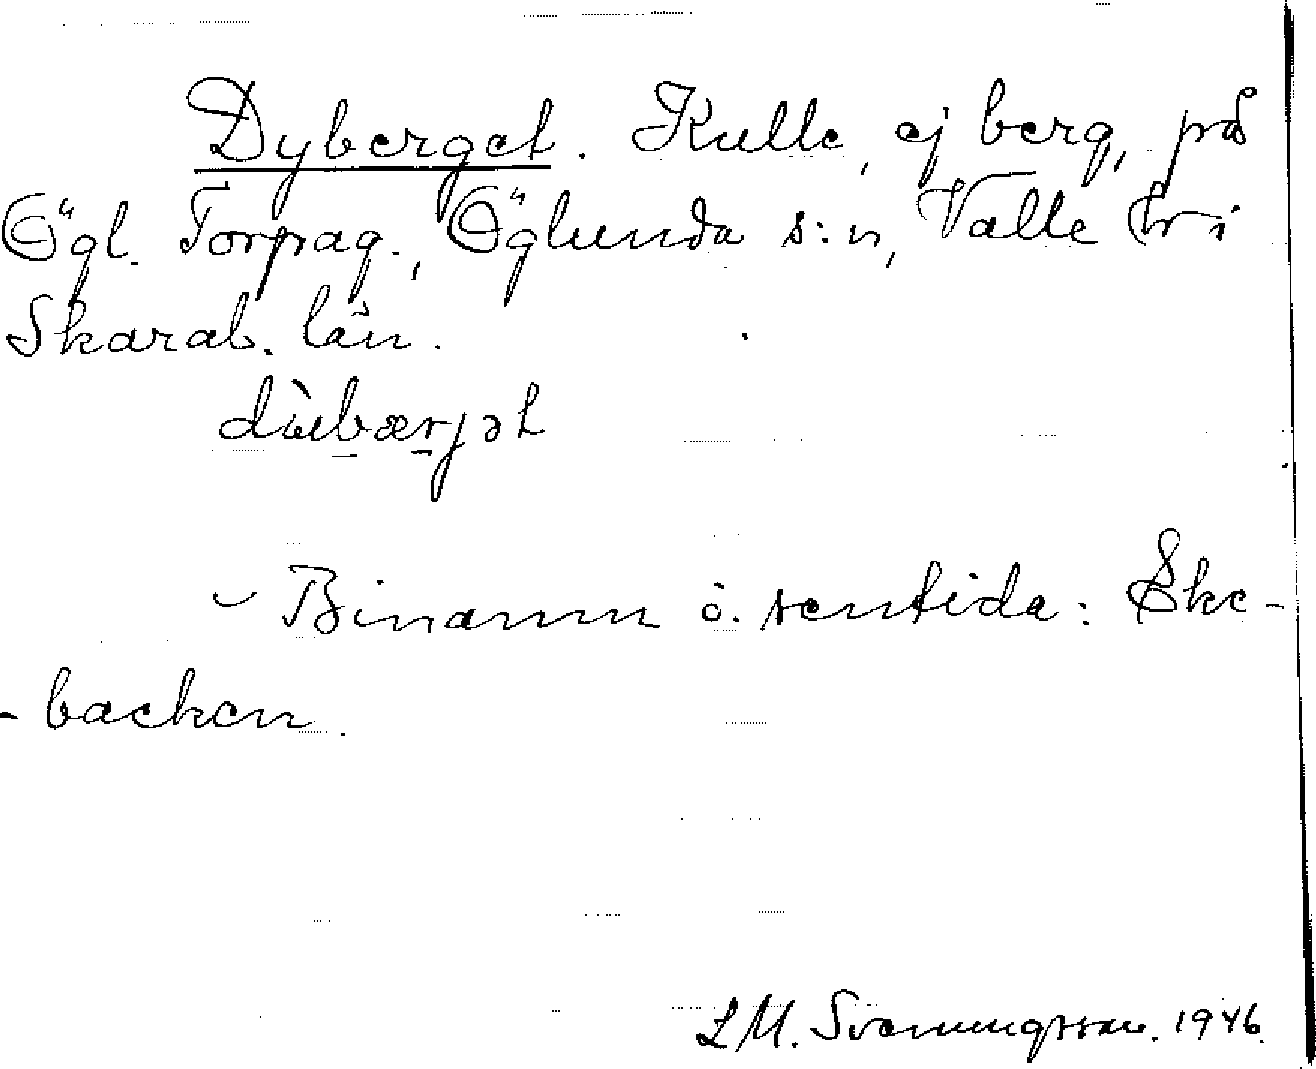 Dyberget. Kulle, ej berg, på
Ögl. Torpag., Öglunda s:n, Valle hr i
Skarab. län.
dùbærjət
- Binamn o. sentida: Eke-
-backen.
L M. Svenungsson. 1946.